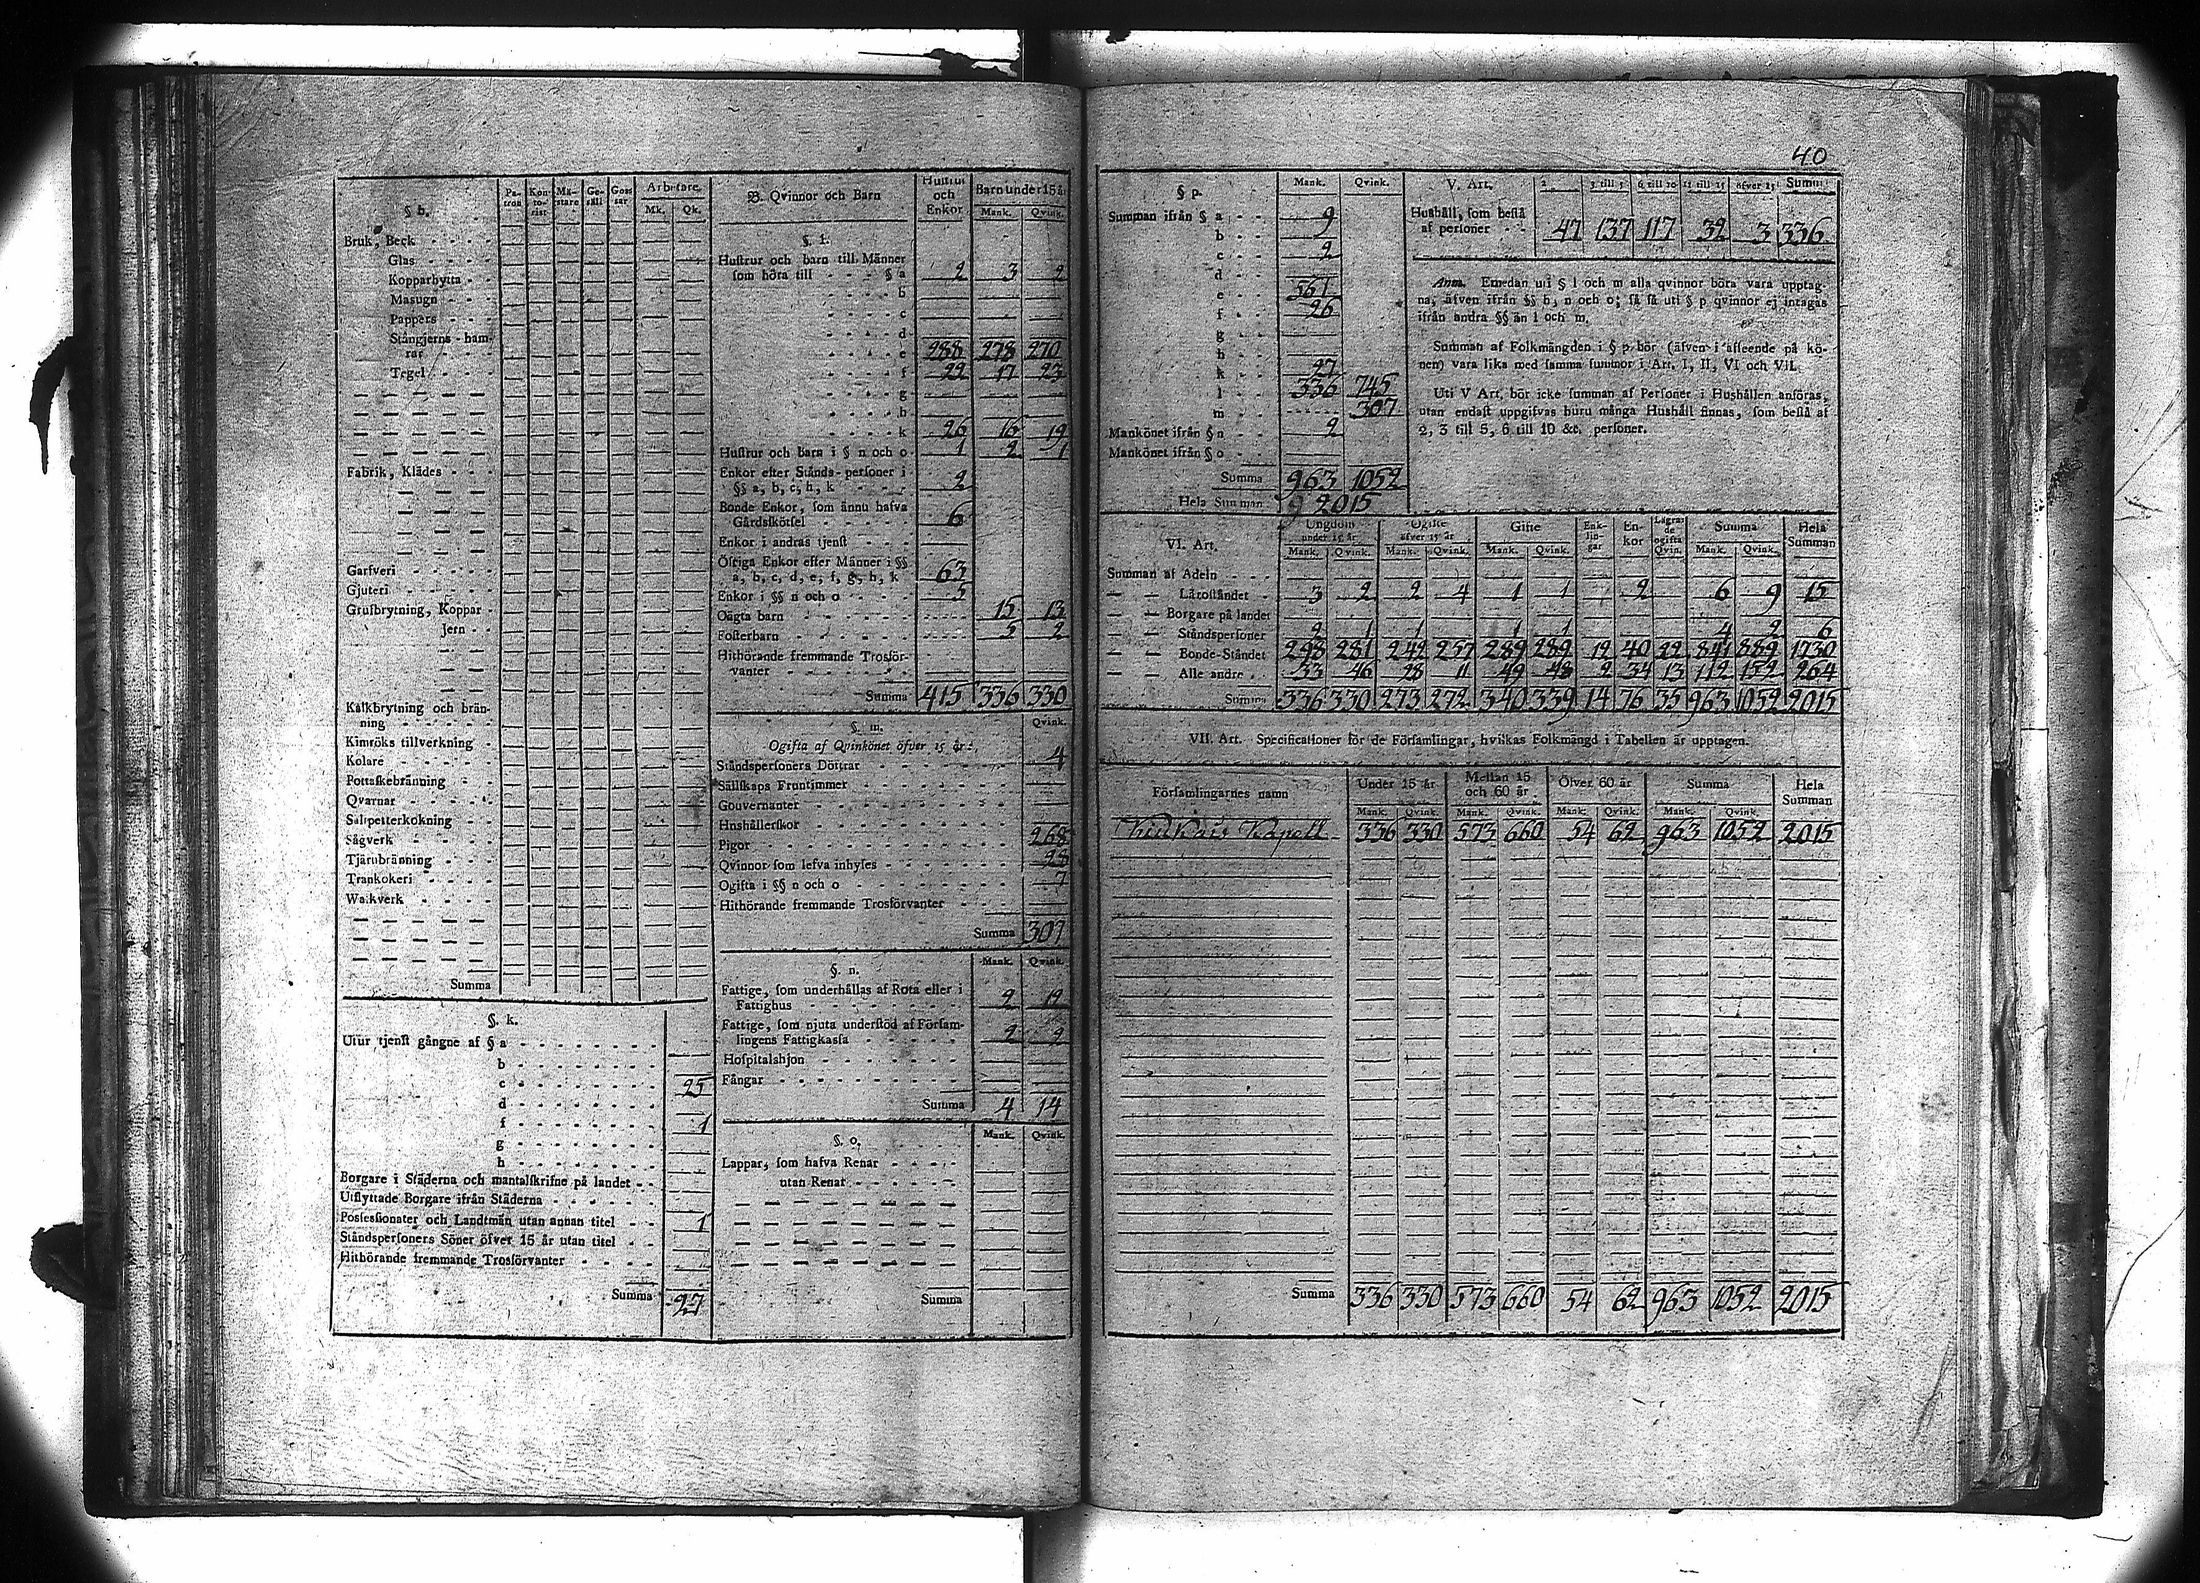 40
§ h. Pa-tron Kon-to-rist Mä-stare Ge-säll Gos-sar Arbetare. Mk. Qk.
Bruk, Beck
Glas
Kopparhytta
Masugn
Pappers
Stångjerns-ham-
rar
Tegel
Fabrik, Klädes
Garfveri
Gjuteri
Grufbrytning, Koppar
Jern
Kalkbrytning och brän-
ning
Kimröks tillverkning
Kolare
Pottaskebränning
Qvarnar
Salpetterkokning
Sågverk
Tjärubränning
Trankokeri
Walkverk
Summa
§. k.
Utur tjenst gångne af § a
b
c 25
d
f 1
g
h
Borgare i Städerna och mantalskrifne på landet
Utflyttade Borgare ifrån Städerna
Possessionater och Landtmän utan annan titel 1
Ståndspersoners Söner öfver 15 år utan titel
Hithörande fremmande Trosförvanter
Summa 27
B. Qvinnor och Barn Hustrur och Enkor Barn under 15 år Mank. Qvink.
§. l.
Hustrur och barn till Männer
som höra till § a 2 3 2
b
c
d
e 288 278 270
f 22 17 23
g
h
k 26 16 19
Hustrur och barn i § n och o 1 2 1
Enkor efter Stånds-personer i
§§ a, b, c, h, k 2
Bonde Enkor, som ännu hafva
Gårdsskötsel 6
Enkor i andras tjenst
Öfriga Enkor efter Männer i §§
a, b, c, d, e, f, g, h, k 63
Enkor i §§ n och o 5
Oägta barn 15 13
Fosterbarn 5 2
Hithörande fremmande Trosför-
vanter
Summa 415 336 330
§. m. Qvink.
Ogifta af Qvinkönet öfver 15 år.
Ståndspersoners Döttrar 4
Sällskaps Fruntimmer
Gouvernanter
Hushållerskor
Pigor 268
Qvinnor som lefva inhyses 28
Ogifta i §§ n och o 7
Hithörande fremmande Trosförvanter
Summa 307
§. n. Mank. Qvink.
Fattige, som underhållas af Rota eller i
Fattighus 2 12
Fattige, som njuta understöd af Försam-
lingens Fattigkassa 2 2
Hospitalshjon
Fångar
Summa 4 14
§. o. Mank. Qvink.
Lappar, som hafva Renar
utan Renar
Summa
§ p. Mank. Qvink.
Summan ifrån § a 9
b
c 2
d
e 561
f 26
g
h
k 27
l 336 745
m 307
Mankönet ifrån § n 2
Mankönet ifrån § o
Summa 963 1052
Hela Summan 2015
V. Art. 2 3 till 5 6 till 10 11 till 15 öfver 15 Summa
Hushåll, som bestå
af personer 47 137 117 32 3 336
Anm. Emedan uti § l och m alla qvinnor böra vara upptag-
na, äfven ifrån §§ h, n och o; så få uti § p qvinnor ej intagas
ifrån andra §§ än l och m.
Summan af Folkmängden i § p bör (äfven i afseende på kö-
nen) vara lika med samma summor i Art. I, II, VI och VII.
Uti V Art. bör icke summan af Personer i Hushållen anföras,
utan endast uppgifvas huru många Hushåll finnas, som bestå af
2, 3 till 5, 6 till 10 &c. personer.
VI. Art. Ungdom under 15 år Ogifte öfver 15 år Gifte Enk-lin-gar En-kor Lägrade ogifta Qvin. Summa Hela Summan
Mank. Qvink. Mank. Qvink. Mank. Qvink. Mank. Qvink.
Summan af Adeln
Läroståndet 3 2 2 4 1 1 2 6 9 15
Borgare på landet
Ståndspersoner 2 1 1 1 1 4 2 6
Bonde-Ståndet 298 281 242 257 289 289 12 40 22 841 889 1730
Alle andre 33 46 28 11 49 48 2 34 13 112 152 264
Summa 336 330 273 272 340 339 14 76 35 963 1052 2015
VII. Art. Specificationer för de Församlingar, hvilkas Folkmängd i Tabellen är upptagen.
Församlingarnes namn Under 15 år Mellan 15 och 60 år Öfver 60 år Summa Hela Summan
Mank. Qvink. Mank. Qvink. Mank. Qvink. Mank. Qvink.
Kapell 336 330 573 660 54 62 963 1052 2015
Summa 336 330 573 660 54 62 963 1052 2015